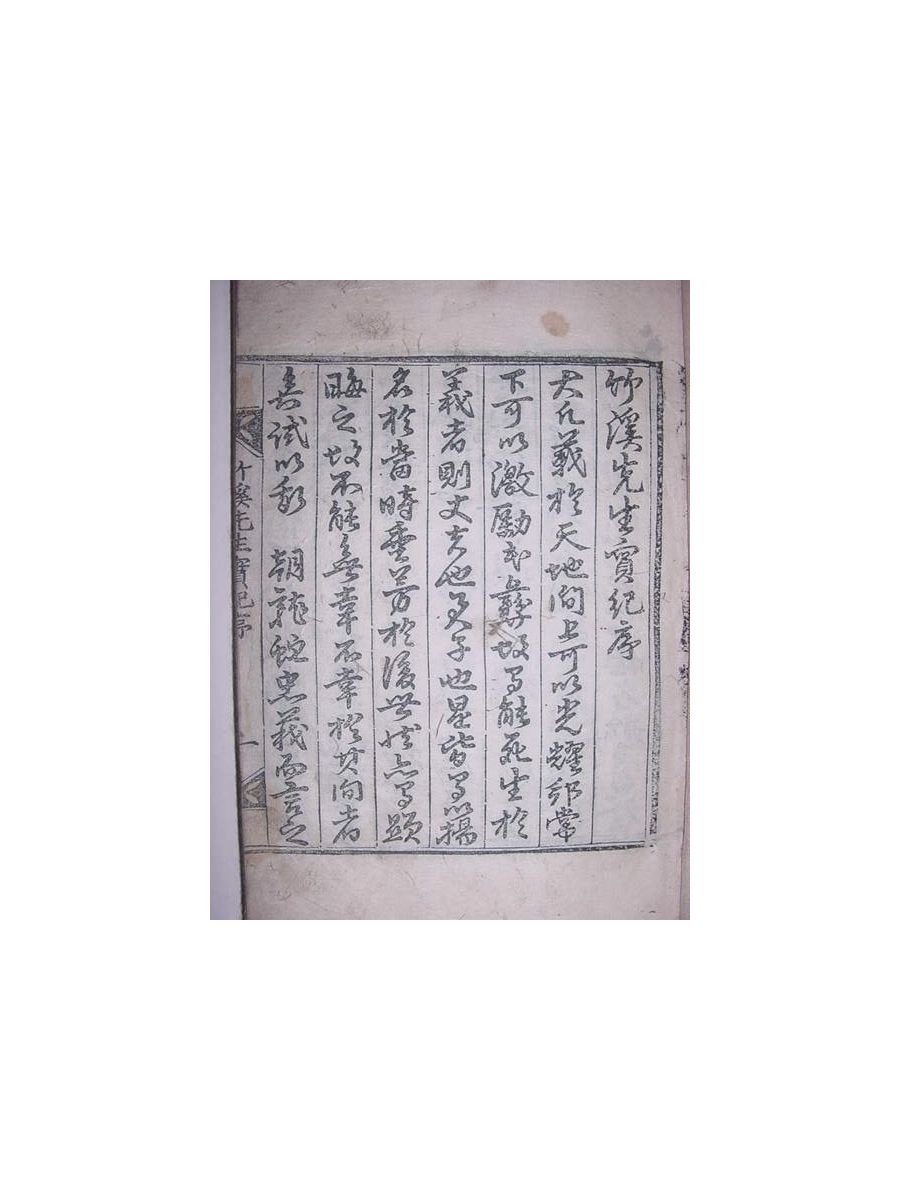 竹溪先生實紀序
大凡義於天地間上可以光耀邦常
下可以激勵民彝故曰能死生於
義者則丈夫也男子也是皆曰以揚
名於當時垂芳於後世然亦曰顯
晦之故不能無幸不幸於其間者
矣試以我　朝龍蛇忠義而言之
竹溪先生實紀序
一